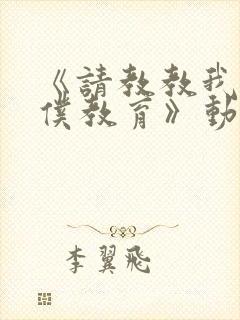 《請教教我
僕教育》動
李翼飛